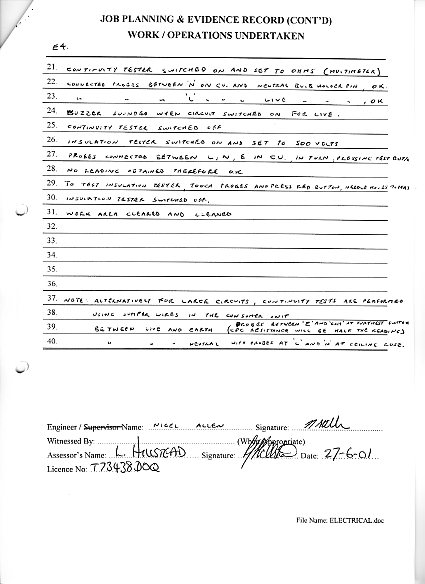 JOB PLANNING & EVIDENCE RECORD (CONT'D)
WORK / OPERATIONS UNDERTAKEN
E4.
21. CONTINUITY TESTER SWITCHED ON AND SET TO OHMS (MULTIMETER)
22. CONNECTED PROBES BETWEEN 'N' ON CU. AND NEUTRAL BULB HOLDER PIN, OK.
23. " " 'L' " " " LIVE " " " , OK
24. BUZZER SOUNDED WHEN CIRCUIT SWITCHED ON FOR LIVE.
25. CONTINUITY TESTER SWITCHED OFF
26. INSULATION TESTER SWITCHED ON AND SET TO 500 VOLTS
27. PROBES CONNECTED BETWEEN L, N, E IN CU. IN TURN, PRESSING TEST BUTTON
28. NO READING OBTAINED THEREFORE OK
29. TO TEST INSULATION TESTER, TOUCH PROBES AND PRESS RED BUTTON, NEEDLE
30. INSULATION TESTER SWITCHED OFF.
31. WORK AREA CLEARED AND CLEANED
32.
33.
34.
35.
36.
37. NOTE: ALTERNATIVELY FOR LARGE CIRCUITS, CONTINUITY TESTS ARE PERFORMED
38. USING JUMPER WIRES IN THE CONSUMER UNIT
PROBES BETWEEN 'E' AND AT FURTHEST
39. BETWEEN LIVE AND EARTH (CPC RESISTANCE WILL BE HALF THE READING)
40. " " " NEUTRAL WITH PROBES AT 'L' AND 'N' AT CEILING ROSE.
Engineer / Supervisor Name: NIGEL ALLEN Signature:
Witnessed By: (Where Appropriate)
Assessor's Name: L. HOUSTEAD Signature: Date: 27-6-01
Licence No: T73438DOQ
File Name: ELECTRICAL.doc